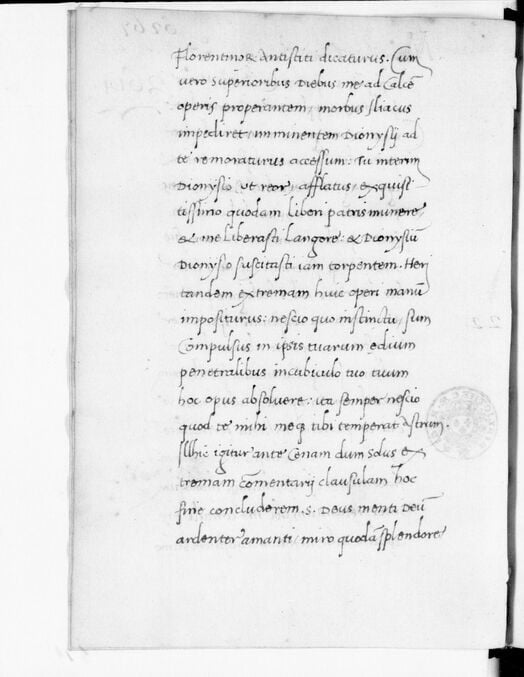 Florentinoq; Antistiti dicaturus. Cum
vero superioribus Diebus me ad Calcē
operis properantem, morbus Iliacus
impediret, imminentem Dionysij ad
te remoraturus accessum: Tu interim
Dionysio ut reor, afflatus, exquisi
tissimo quodam liberi patris munere,
& me liberasti langore: & Dionysiū
Dionysio suscitasti iam torpentem. Heri
tandem extremam huic operi manū
impositurus: nescio quo instinctu, sum
Compulsus in ipsis tuarum ędium
penetralibus incubiculo tuo tuum
hoc opus absolvere: ita semper nescio
quod te mihi meq; tibi temperat Astrum.
Illhic igitur ante Cenam dum Solus ex
tremam Cōmentarij clausulam hoc
fine concluderem. s. Deus menti Deū
ardenter amanti, miro quodā splendore